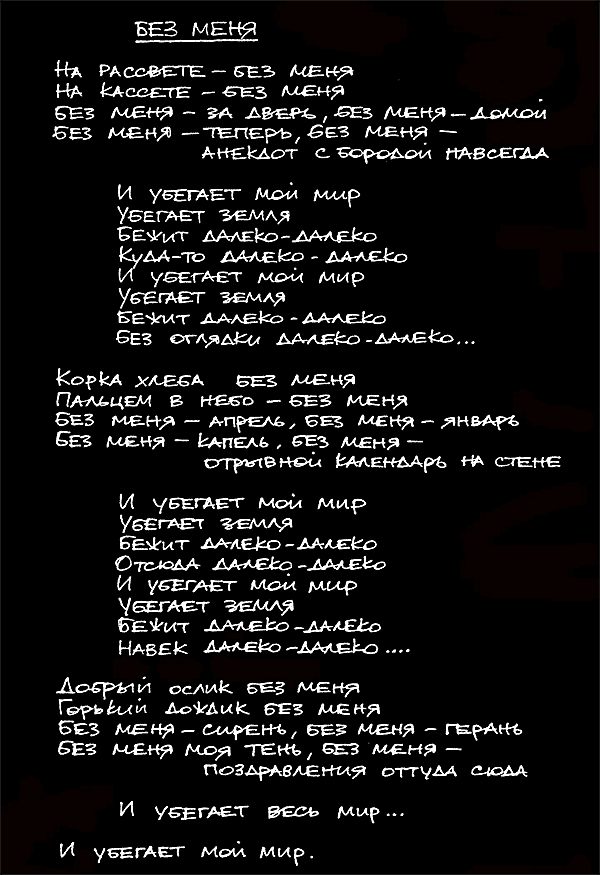 БЕЗ МЕНЯ
НА РАССВЕТЕ – БЕЗ МЕНЯ
НА КАССЕТЕ – БЕЗ МЕНЯ
БЕЗ МЕНЯ – ЗА ДВЕРЬ, БЕЗ МЕНЯ – ДОМОЙ
БЕЗ МЕНЯ – ТЕПЕРЬ, БЕЗ МЕНЯ –
АНЕКДОТ С БОРОДОЙ НАВСЕГДА
И УБЕГАЕТ МОЙ МИР
УБЕГАЕТ ЗЕМЛЯ
БЕЖИТ ДАЛЕКО-ДАЛЕКО
КУДА-ТО ДАЛЕКО-ДАЛЕКО
И УБЕГАЕТ МОЙ МИР
УБЕГАЕТ ЗЕМЛЯ
БЕЖИТ ДАЛЕКО-ДАЛЕКО
БЕЗ ОГЛЯДКИ ДАЛЕКО-ДАЛЕКО...
КОРКА ХЛЕБА БЕЗ МЕНЯ
ПАЛЬЦЕМ В НЕБО – БЕЗ МЕНЯ
БЕЗ МЕНЯ – АПРЕЛЬ, БЕЗ МЕНЯ – ЯНВАРЬ
БЕЗ МЕНЯ – КАПЕЛЬ, БЕЗ МЕНЯ –
ОТРЫВНОЙ КАЛЕНДАРЬ НА СТЕНЕ
И УБЕГАЕТ МОЙ МИР
УБЕГАЕТ ЗЕМЛЯ
БЕЖИТ ДАЛЕКО-ДАЛЕКО
ОТСЮДА ДАЛЕКО-ДАЛЕКО
И УБЕГАЕТ МОЙ МИР
УБЕГАЕТ ЗЕМЛЯ
БЕЖИТ ДАЛЕКО-ДАЛЕКО
НАВЕК ДАЛЕКО-ДАЛЕКО....
ДОБРЫЙ ОСЛИК БЕЗ МЕНЯ
ГОРЬКИЙ ДОЖДИК БЕЗ МЕНЯ
БЕЗ МЕНЯ – СИРЕНЬ, БЕЗ МЕНЯ – ГЕРАНЬ
БЕЗ МЕНЯ МОЯ ТЕНЬ, БЕЗ МЕНЯ –
ПОЗДРАВЛЕНИЯ ОТТУДА СЮДА
И УБЕГАЕТ ВЕСЬ МИР...
И УБЕГАЕТ МОЙ МИР.